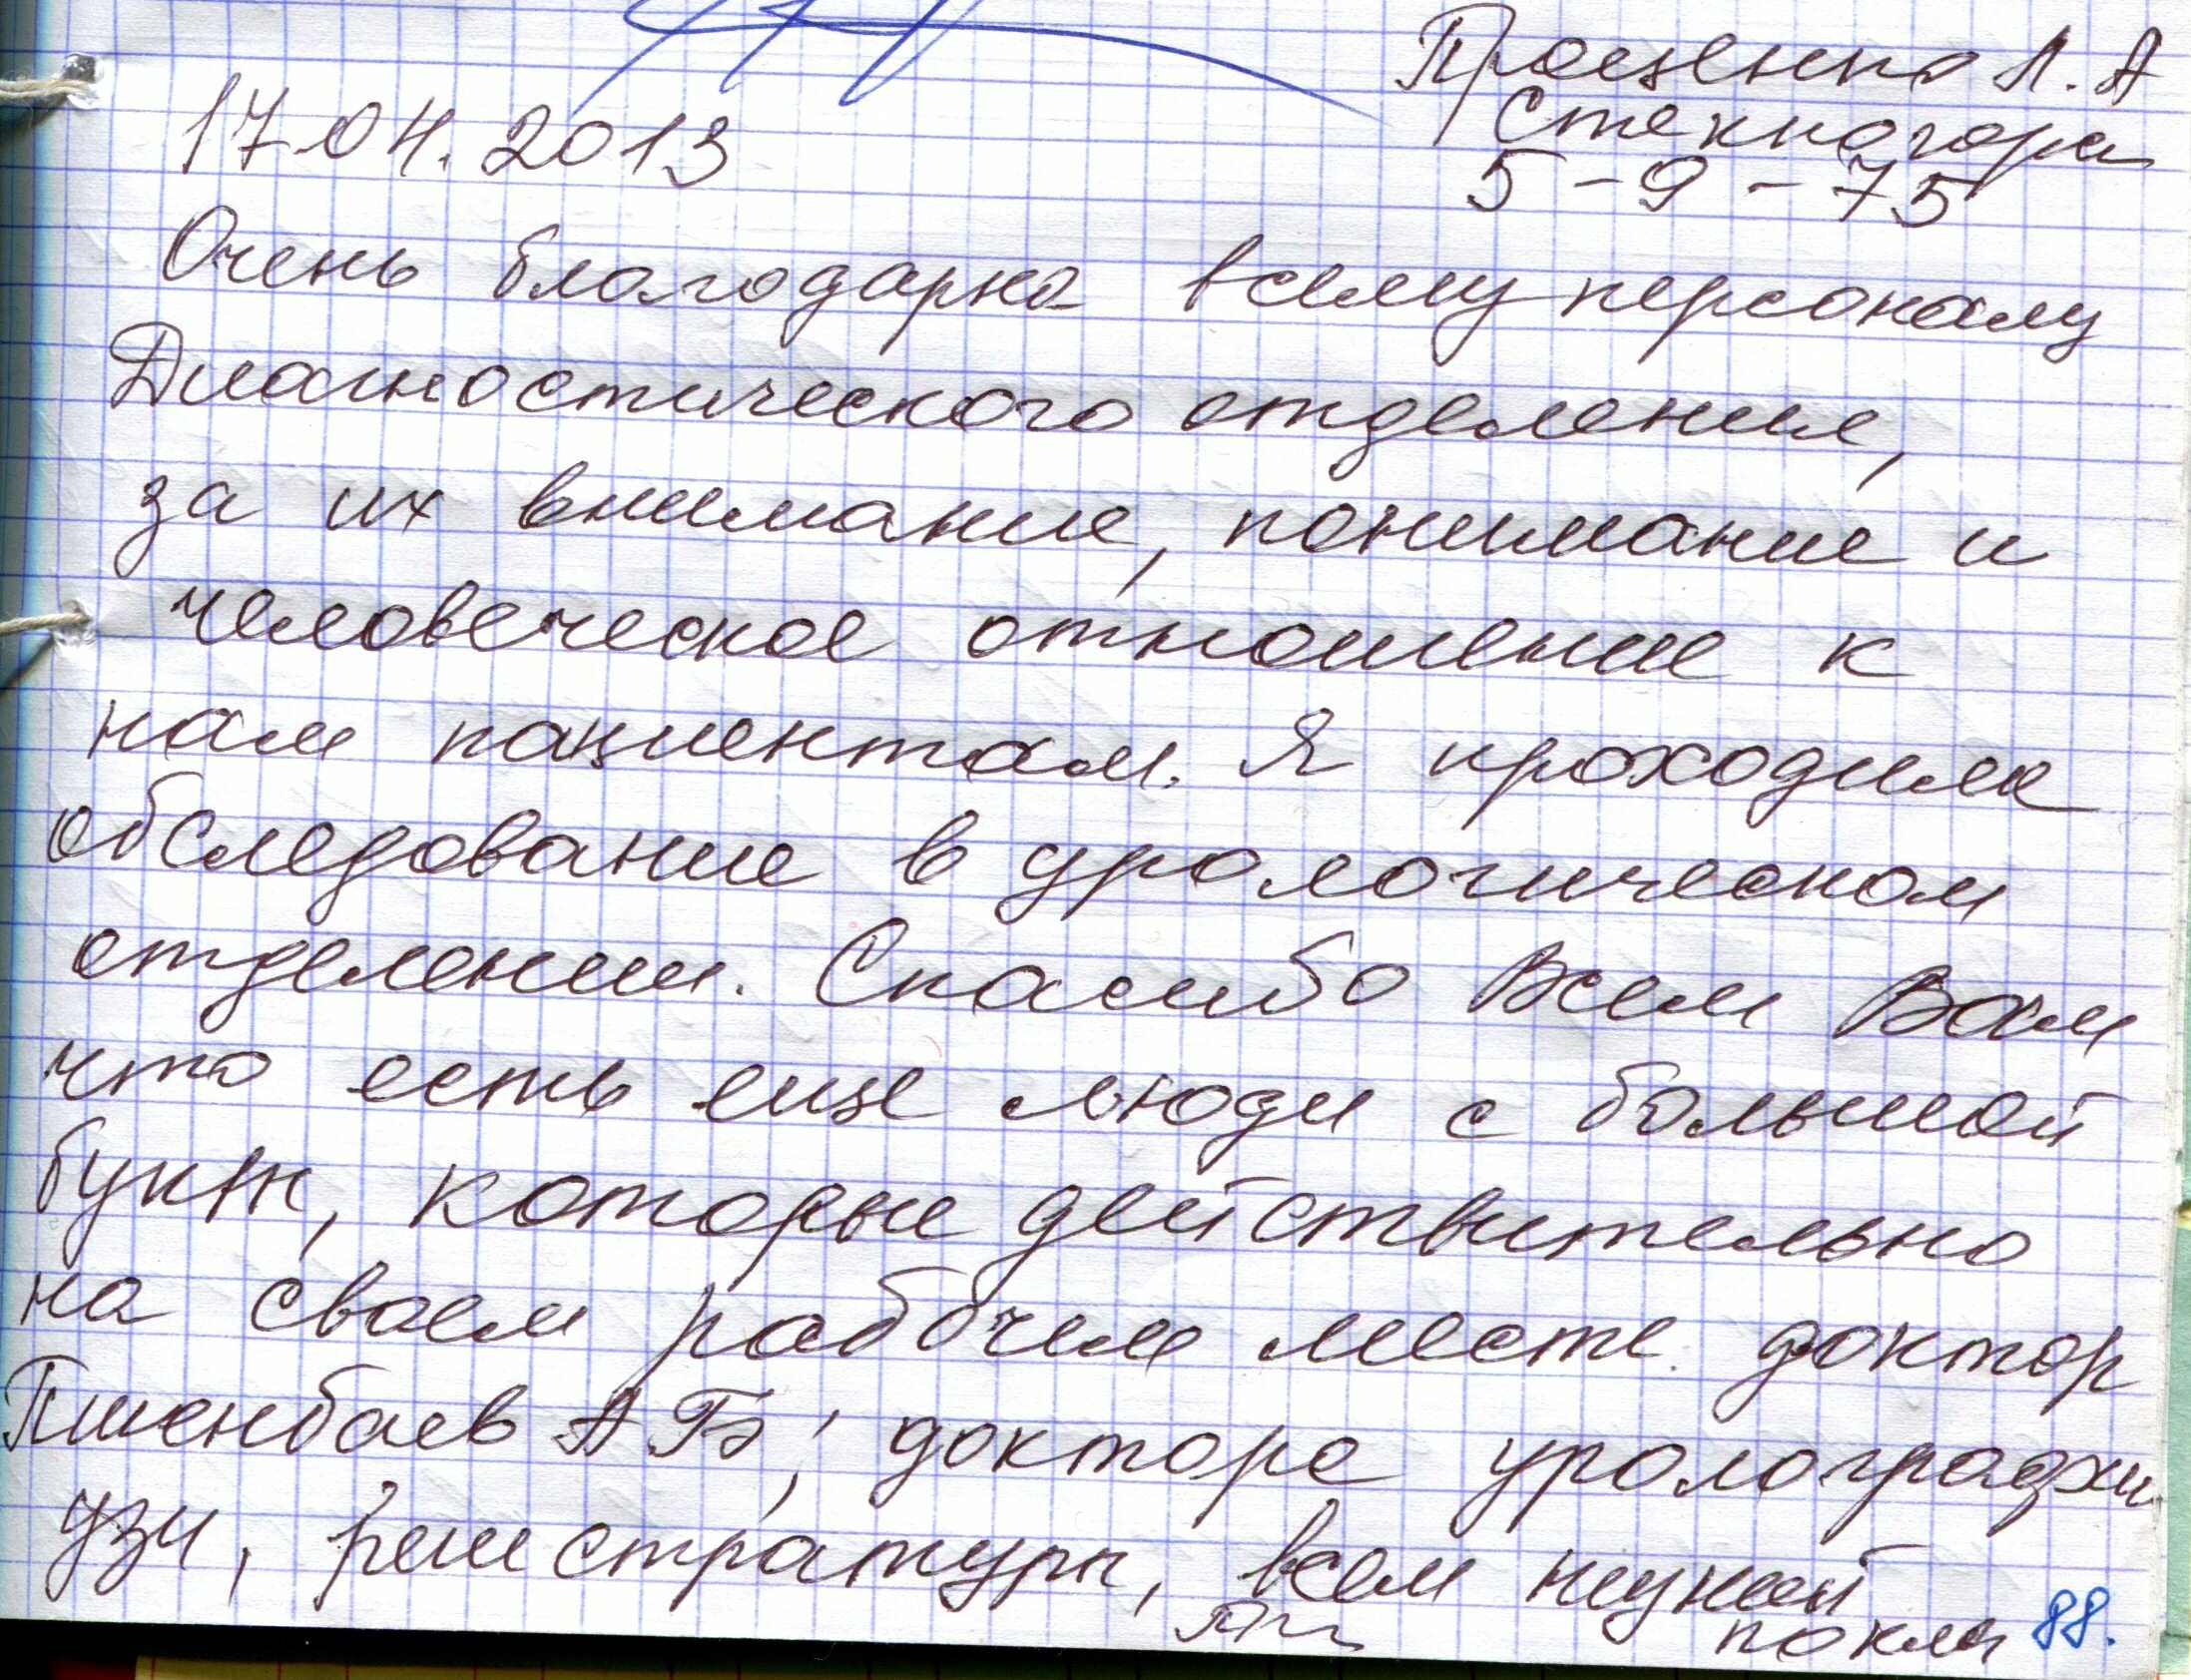 Проценко Л. А
17.04.2013
Стекногори
5-9-75
Очень благодарна всему персоналу
Диагностического отделения,
за их внимание, понимание и
человеческое отношение к
нам пациентам. Я проходила
обследование в урологическом
отделении. Спасибо Всем Вам
что есть еще люди с большой
букж, которые действительно
на своем рабочем месте. доктор
Пшенбаев А Б; доктора урологграфии
узи, регистратуры, всем низкий
поклон
88.